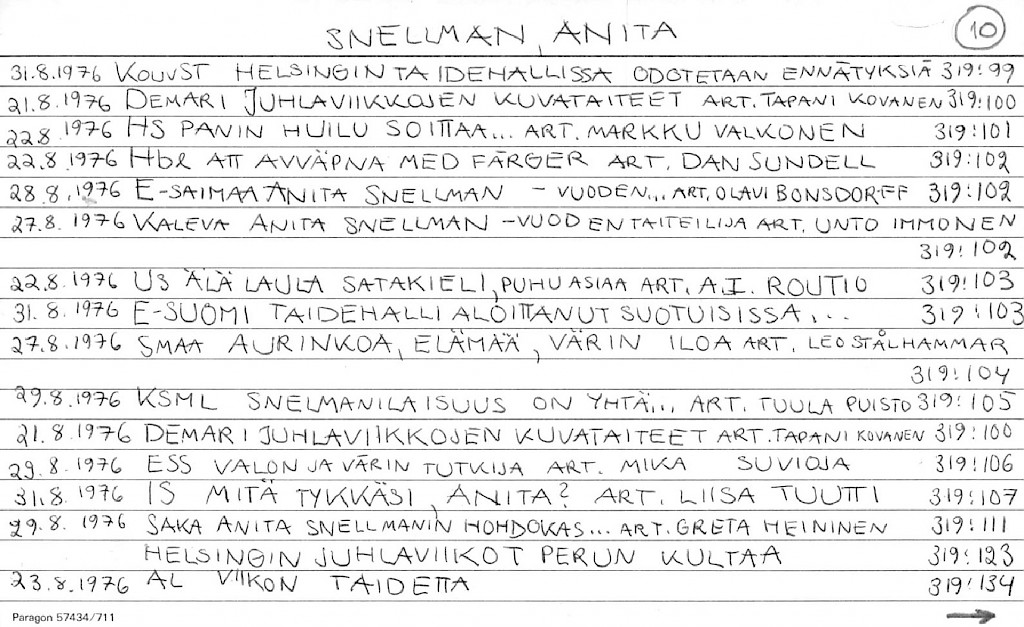 SNELLMAN, ANITA
10
31.8.1976 KOUVST HELSINGIN TAIDEHALLISSA ODOTETAAN ENNÄTYKSIÄ 319:99
21.8.1976 DEMARI JUHLAVIIKKOJEN KUVATAITEET ART. TAPANI KOVANEN 319:100
22.8.1976 HS PANIN HUILU SOITTAA... ART. MARKKU VALKONEN 319:101
22.8.1976 Hbl ATT AVVÄPNA MED FÄRGER ART. DAN SUNDELL 319:102
28.8.1976 E-SAIMAA ANITA SNELLMAN - VUODEN... ART. OLAVI BONSDORFF 319:102
27.8.1976 KALEVA ANITA SNELLMAN - VUODEN TAITEILIJA ART. UNTO IMMONEN
319:102
22.8.1976 US ÄLÄ LAULA SATAKIELI, PUHU ASIAA ART. A.I. ROUTIO 319:103
31.8.1976 E-SUOMI TAIDEHALLI ALOITTANUT SUOTUISISSA... 319:103
27.8.1976 SMAA AURINKOA, ELÄMÄÄ, VÄRIN ILOA ART. LEO STÅLHAMMAR
319:104
29.8.1976 KSML SNELMANILAISUUS ON YHTÄ... ART. TUULA PUISTO 319:105
21.8.1976 DEMARI JUHLAVIIKKOJEN KUVATAITEET ART. TAPANI KOVANEN 319:100
29.8.1976 ESS VALON JA VÄRIN TUTKIJA ART. MIKA SUVIOJA 319:106
31.8.1976 IS MITÄ TYKKÄSI, ANITA? ART. LIISA TUUTTI 319:107
29.8.1976 SAKA ANITA SNELLMANIN HOHDOKAS... ART. GRETA HEININEN 319:111
HELSINGIN JUHLAVIIKOT PERUN KULTAA 319:123
23.8.1976 AL VIIKON TAIDETTA 319:134
Paragon 57434/711 →